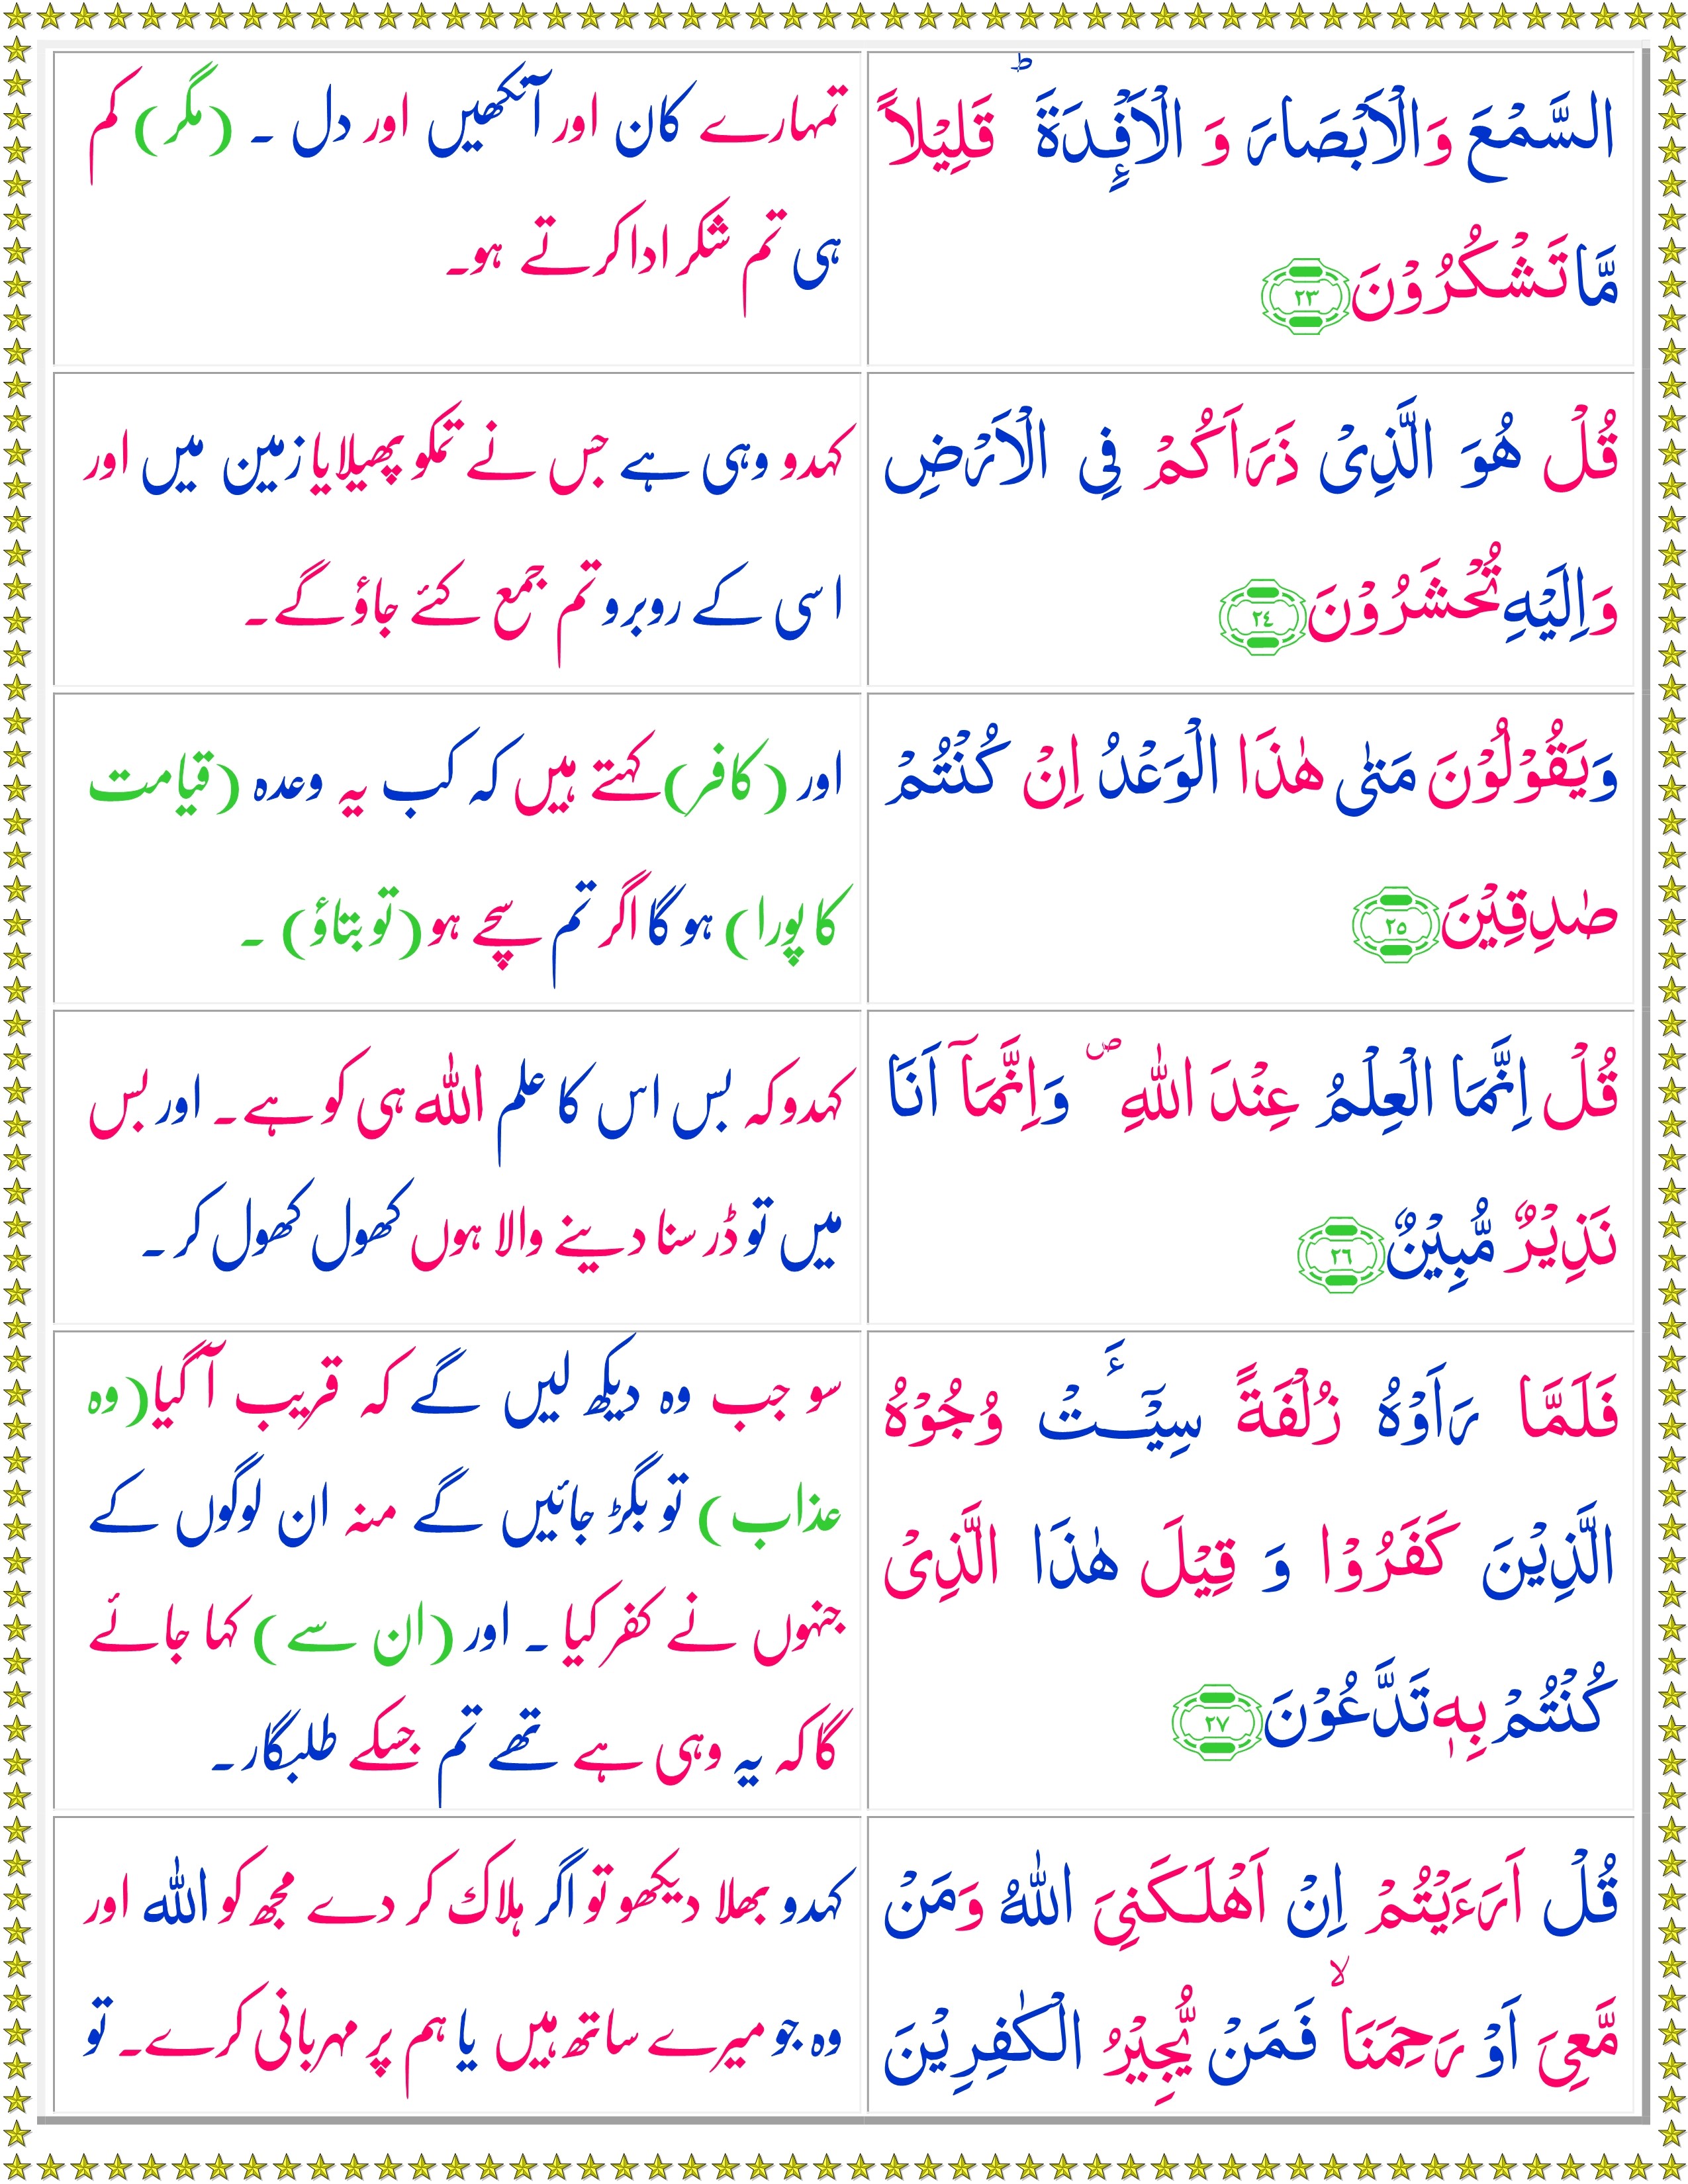 السَّمْعَ وَالْاَبْصَارَ وَ الْاَفْـِٕدَةَ ؕ قَلِيْلاً
مَّا تَشْكُرُوْنَ ٢٣
تمہارے کان اور آنکھیں اور دل ۔ (مگر) کم
ہی تم شکر ادا کرتے ہو۔
قُلْ هُوَ الَّذِىْ ذَرَاَكُمْ فِى الْاَرْضِ
وَاِلَيْهِ تُحْشَرُوْنَ ٢٤
کہدو وہی ہے جس نے تمکو پھیلایا زمین میں اور
اسی کے روبرو تم جمع کئے جاؤ گے۔
وَيَقُوْلُوْنَ مَتٰى هٰذَا الْوَعْدُ اِنْ كُنْتُمْ
صٰدِقِيْنَ ٢٥
اور (کافر) کہتے ہیں کہ کب یہ وعدہ (قیامت
کا پورا) ہو گا اگر تم سچے ہو (تو بتاؤ) ۔
قُلْ اِنَّمَا الْعِلْمُ عِنْدَ اللّٰهِ ۖ وَاِنَّمَاۤ اَنَا
نَذِيْرٌ مُّبِيْنٌ ٢٦
کہدو کہ بس اس کا علم اللہ ہی کو ہے۔ اور بس
میں تو ڈر سنا دینے والا ہوں کھول کھول کر۔
فَلَمَّا رَاَوْهُ زُلْفَةً سِیْٓــَٔتْ وُجُوْهُ
الَّذِيْنَ كَفَرُوْا وَ قِيْلَ هٰذَا الَّذِىْ
كُنْتُمْ بِهٖ تَدَّعُوْنَ ٢٧
سو جب وہ دیکھ لیں گے کہ قریب آ گیا (وہ
عذاب) تو بگڑ جائیں گے منہ ان لوگوں کے
جنہوں نے کفر کیا ۔ اور (ان سے) کہا جائے
گا کہ یہ وہی ہے تھے تم جسکے طلبگار۔
قُلْ اَرَءَيْتُمْ اِنْ اَهْلَـكَنِىَ اللّٰهُ وَمَنْ
مَّعِىَ اَوْ رَحِمَنَا ۙ فَمَنْ يُّجِيْرُ الْكٰفِرِيْنَ
کہدو بھلا دیکھو تو اگر ہلاک کر دے مجھ کو اللہ اور
وہ جو میرے ساتھ ہیں یا ہم پر مہربانی کرے۔ تو